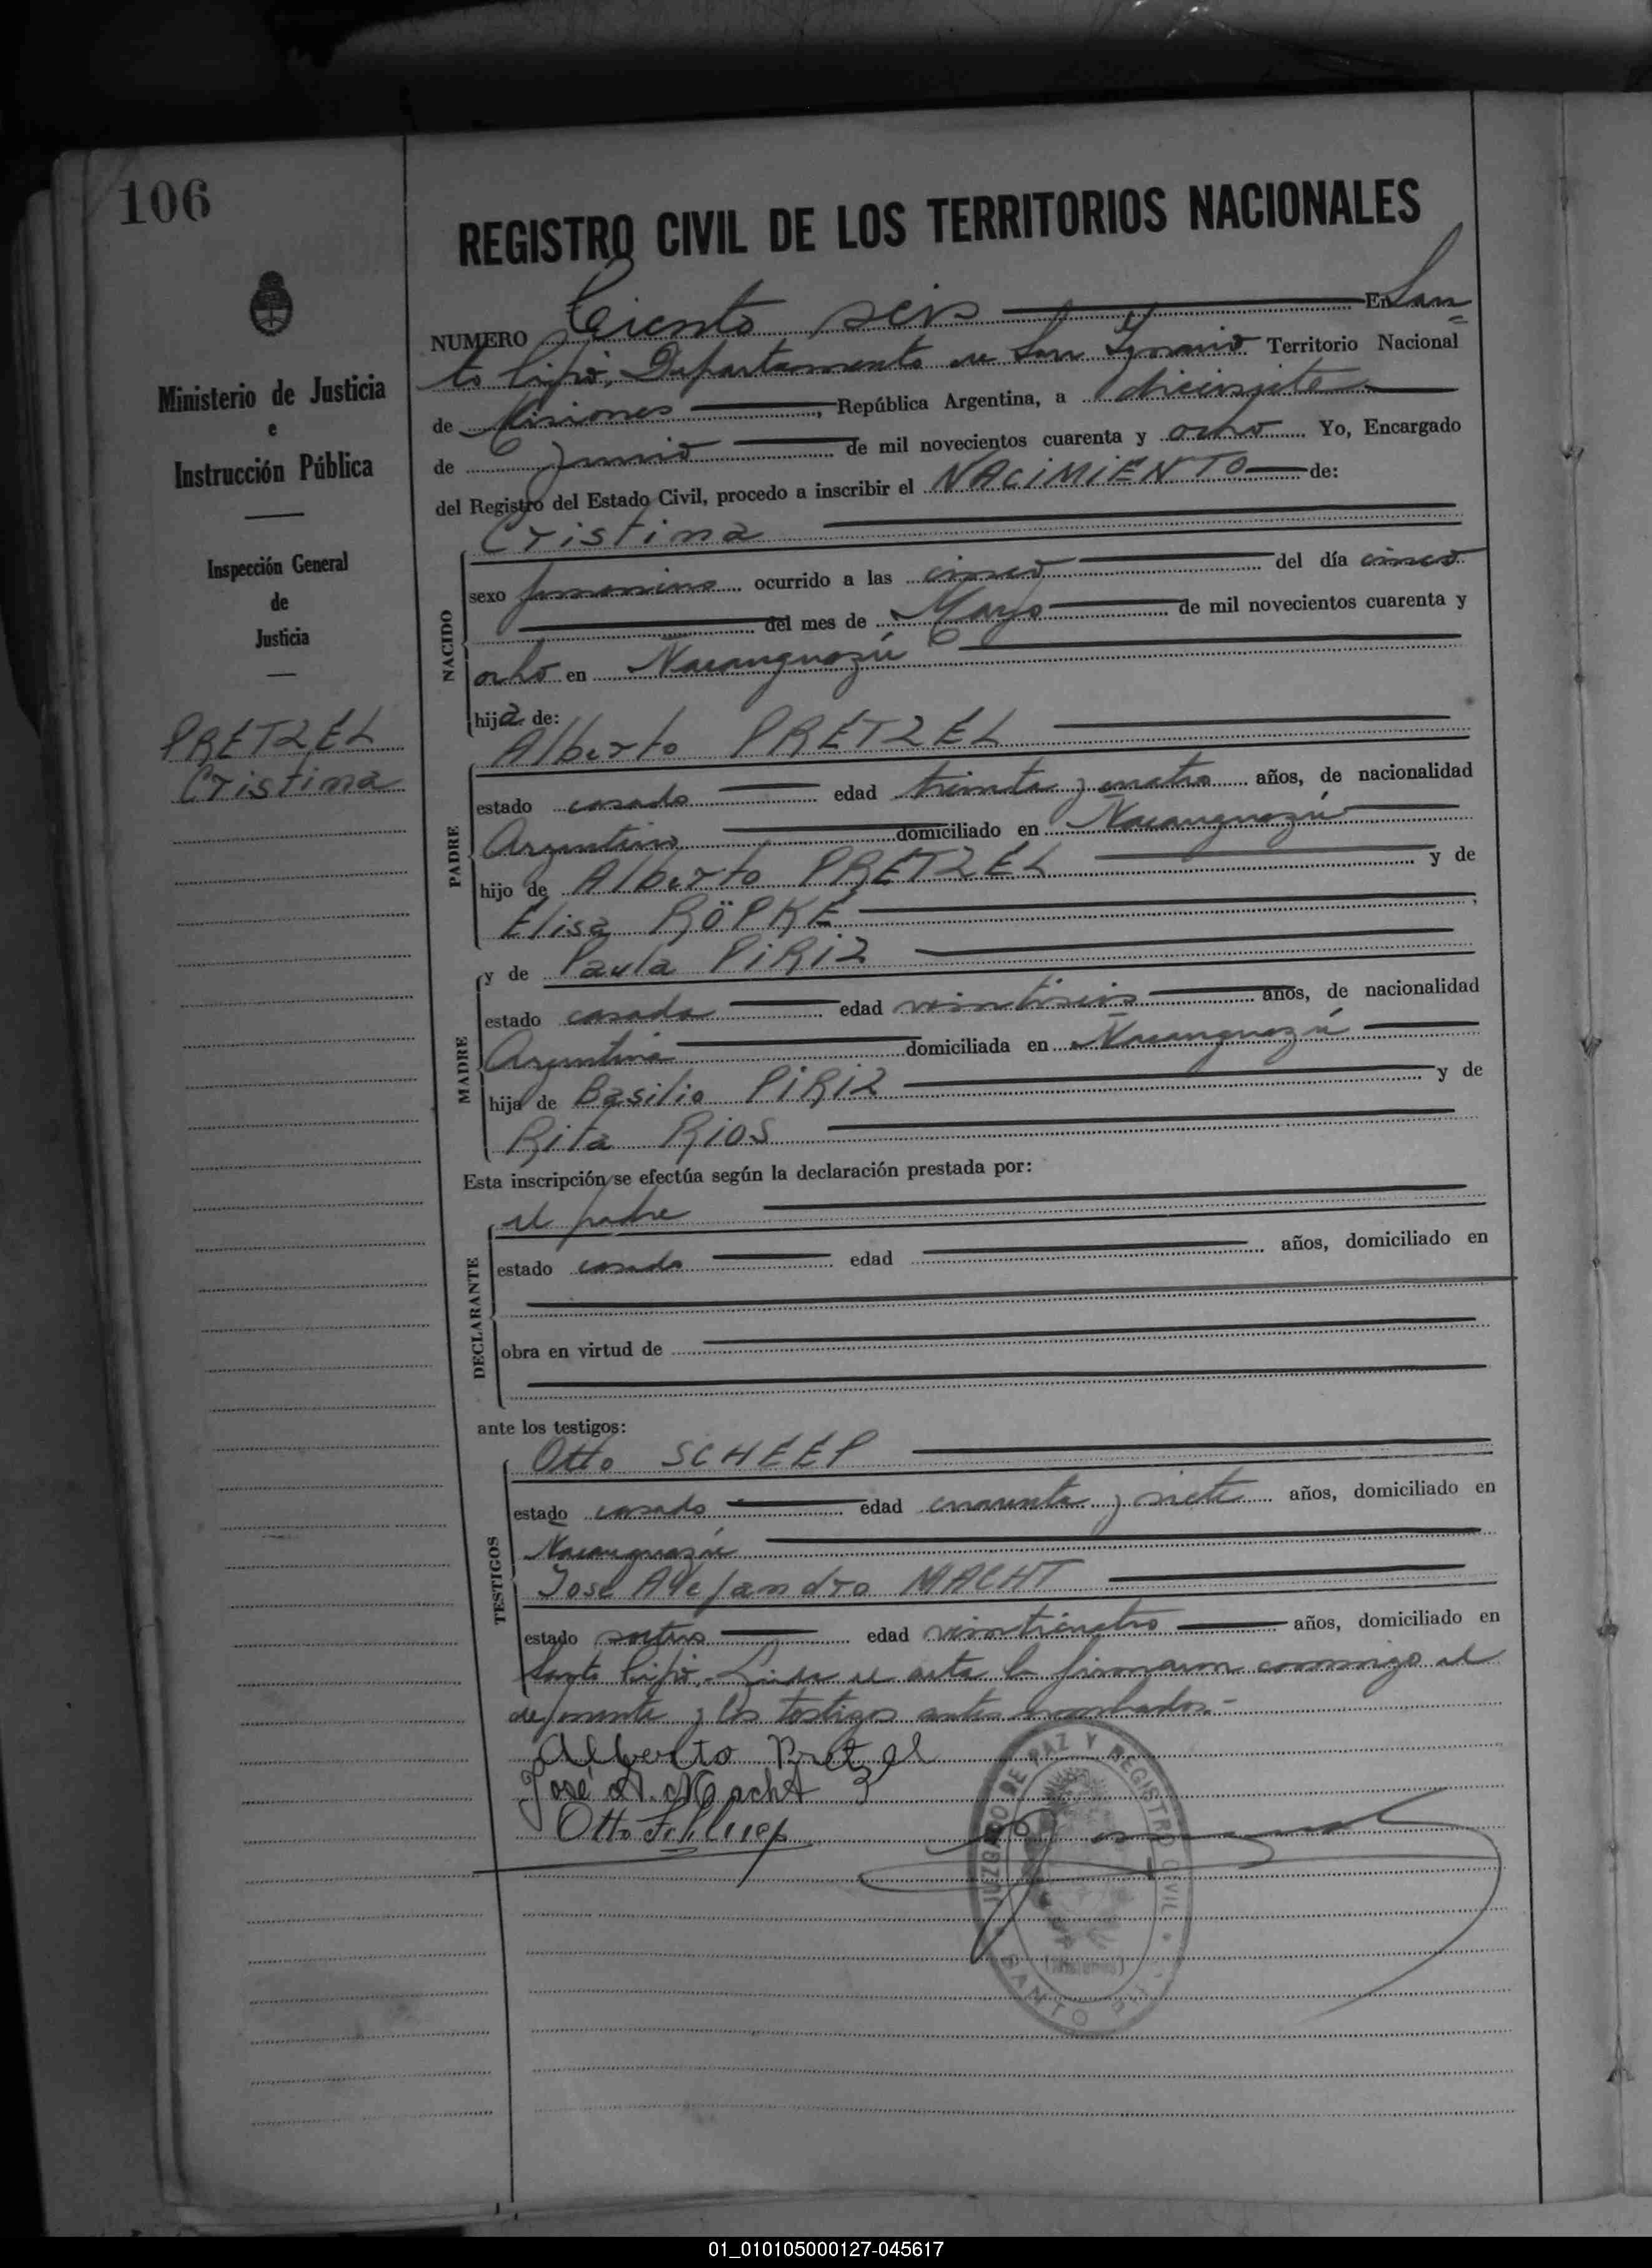 106
REGISTRO CIVIL DE LOS TERRITORIOS NACIONALES
NUMERO Ciento seis En San=
to Pipó, Departamento de San Ignacio Territorio Nacional
de Misiones, República Argentina, a diecisiete
de Junio de mil novecientos cuarenta y ocho Yo, Encargado
del Registro del Estado Civil, procedo a inscribir el NACIMIENTO de:
Ministerio de Justicia
e
Instrucción Pública
Inspección General
de
Justicia
PRETZEL
Cristina
NACIDO
Cristina
sexo femenino ocurrido a las cinco del día cinco
del mes de Mayo de mil novecientos cuarenta y
ocho en Ñacanguazú
hija de:
PADRE
Alberto PRETZEL
estado casado edad treinta y cuatro años, de nacionalidad
Argentino domiciliado en Ñacanguazú
hijo de Alberto PRETZEL y de
Elisa RÖPKE
MADRE
y de Paula PIRIZ
estado casada edad veintiseis años, de nacionalidad
Argentina domiciliada en Ñacanguazú
hija de Basilio PIRIZ y de
Rita RIOS
Esta inscripción se efectúa según la declaración prestada por:
DECLARANTE
el padre
estado casado edad años, domiciliado en
obra en virtud de
ante los testigos:
TESTIGOS
Otto SCHEEP
estado casado edad cuarenta y siete años, domiciliado en
Ñacanguazú
José Alejandro MACHT
estado soltero edad veinticuatro años, domiciliado en
Santo Pipó.- Leida el acta la firmaron conmigo el
deponente y los testigos antes nombrados.-
Alberto Pretzel
José A. Macht
Otto
JUZGADO DE PAZ Y REGISTRO CIVIL
SANTO
(Misiones)
01_010105000127-045617